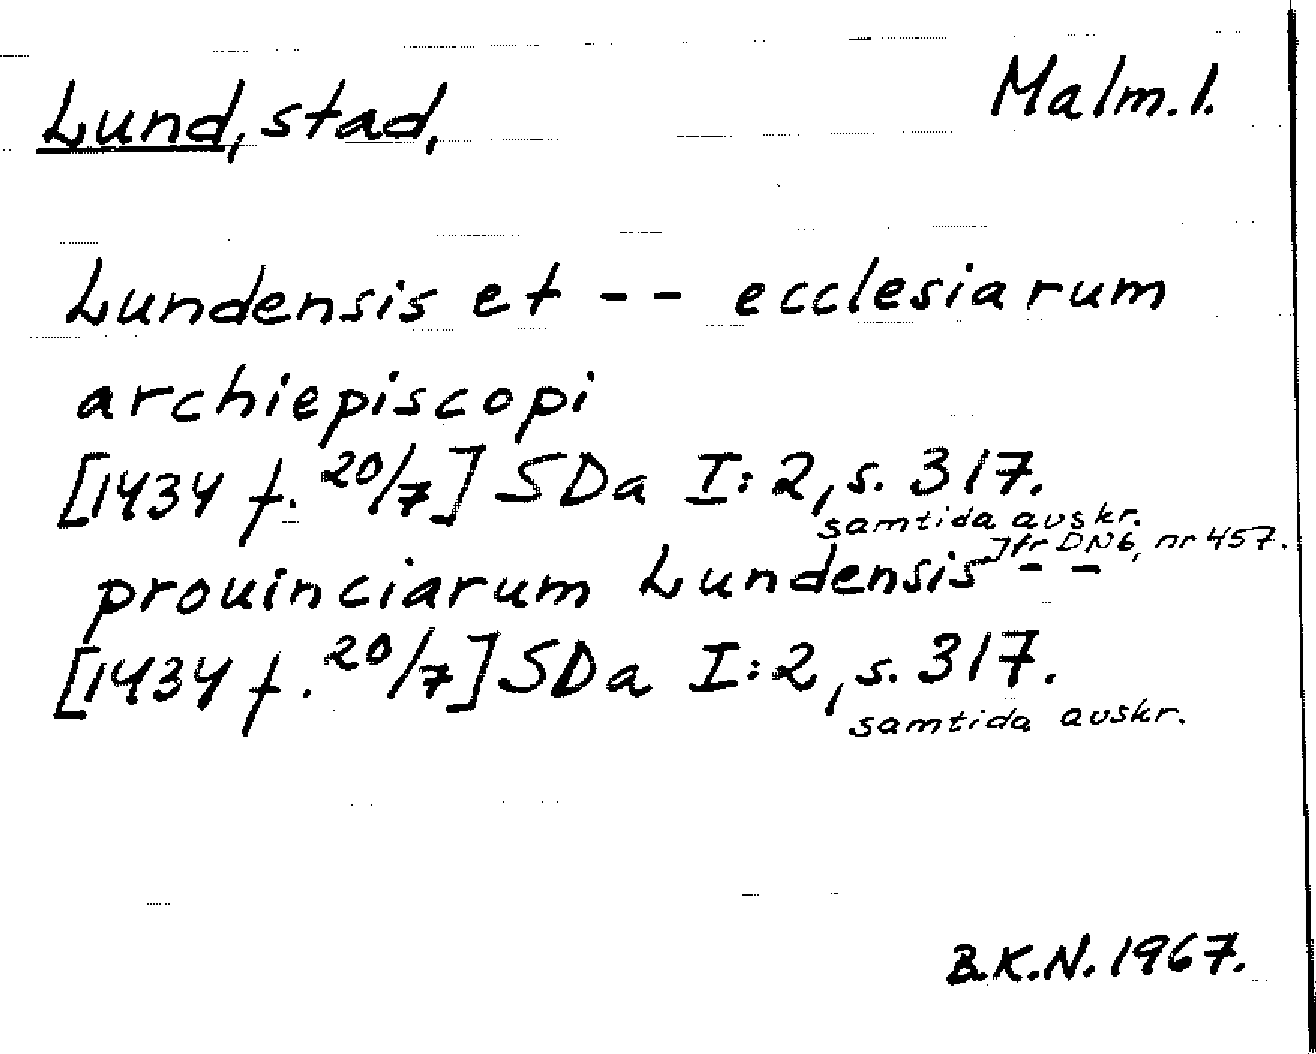 Lund, stad,
Malm. l.
Lundensis et -- ecclesiarum
archiepiscopi
[1434 f. 20/7] SDa I:2, s. 317.
samtida avskr.
Jfr DN6, nr 457.
prouinciarum Lundensis --
[1434 f. 20/7] SDa I:2, s. 317.
samtida avskr.
B.K.N. 1967.